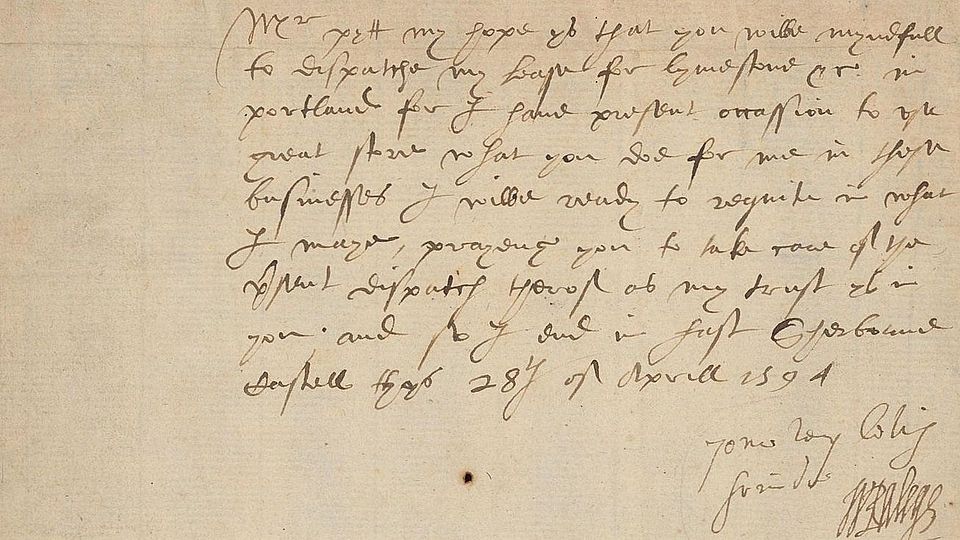 Mr pytt my hope ys that you wilbe myndfull
to dispatche my lease for lymestone &c. in
portland for I have present occassion to use
great store what you doe for me in these
businesses I wilbe ready to requite in what
I maye, prayeng you to take care of the
p'sent dispatch therof as my trust ys in
you. and so I end in hast Sherborne
Castell thys 28th of Aprill 1594
your very loving
frinde
WRalegh